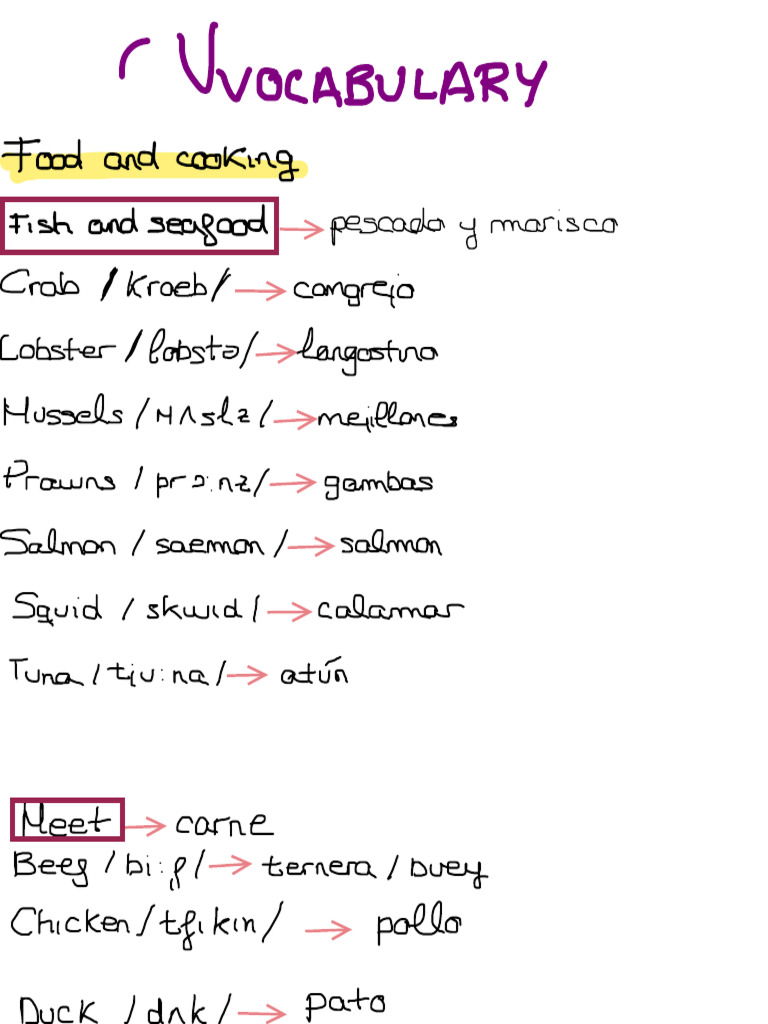 VVOCABULARY
Food and cooking
Fish and seafood → pescado y marisco
Crab /kraeb/ → cangrejo
Lobster /lobstə/ → langostino
Mussels /mʌslz/ → mejillones
Prawns /prɔ:nz/ → gambas
Salmon /saemon/ → salmon
Squid /skwid/ → calamar
Tuna /tju:na/ → atún
Meet → carne
Beef /bi:f/ → ternera / buey
Chicken /tʃikin/ → pollo
Duck /dʌk/ → pato